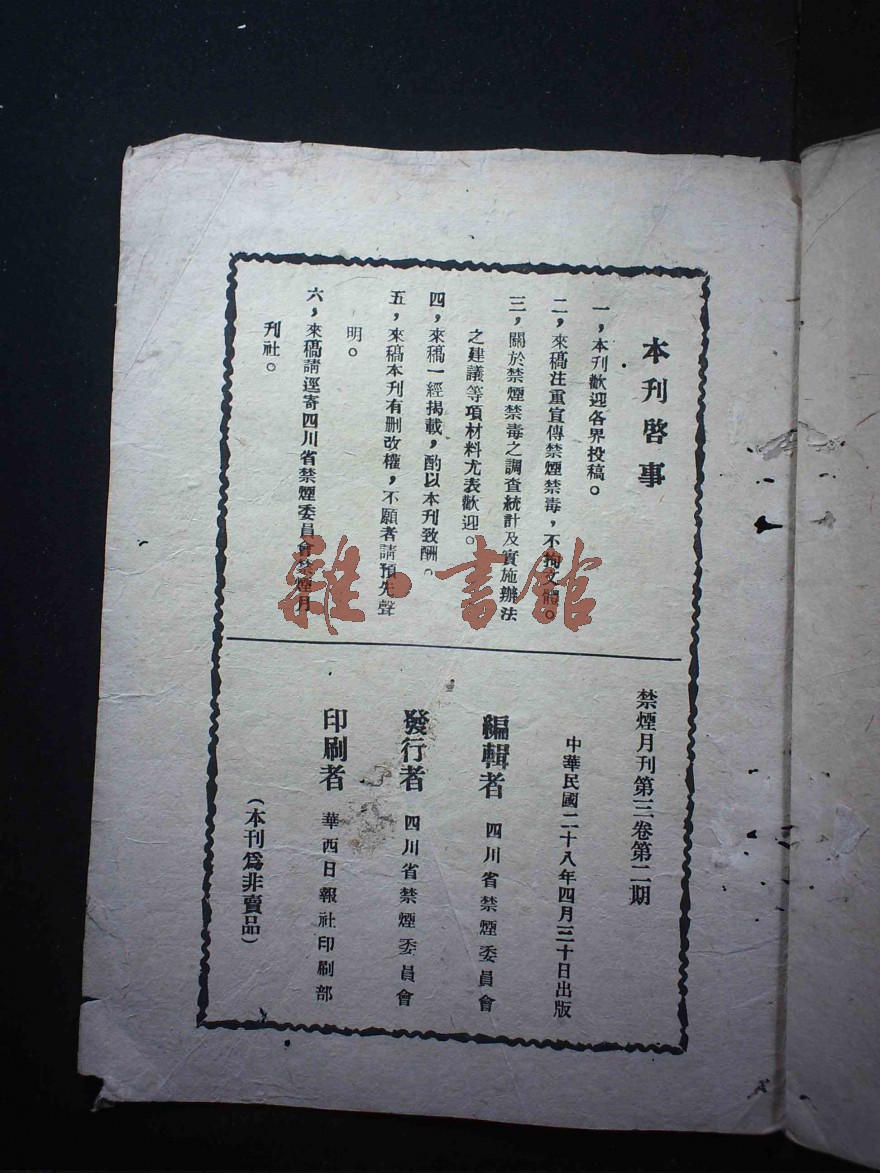 本刊啓事
一，本刊歡迎各界投稿。
二，來稿注重宣傳禁煙禁毒，不拘文體。
三，關於禁煙禁毒之調查統計及實施辦法
之建議等項材料尤表歡迎。
四，來稿一經揭載，酌以本刊致酬。
五，來稿本刊有刪改權，不願者請預先聲
明。
六，來稿請逕寄四川省禁煙委員會禁煙月
刊社。
禁煙月刊第三卷第二期
中華民國二十八年四月三十日出版
編輯者 四川省禁煙委員會
發行者 四川省禁煙委員會
印刷者 華西日報社印刷部
（本刊爲非賣品）
雜·書館